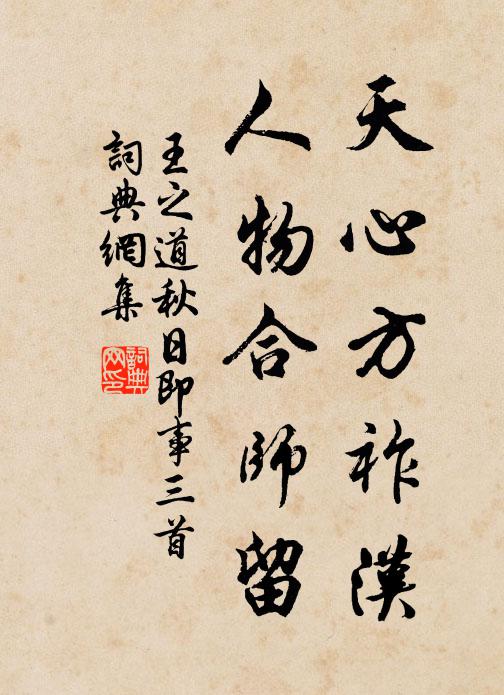 天心方祚漢
人物合師留
王之道秋日即事三首
詞典網集
詞典網印